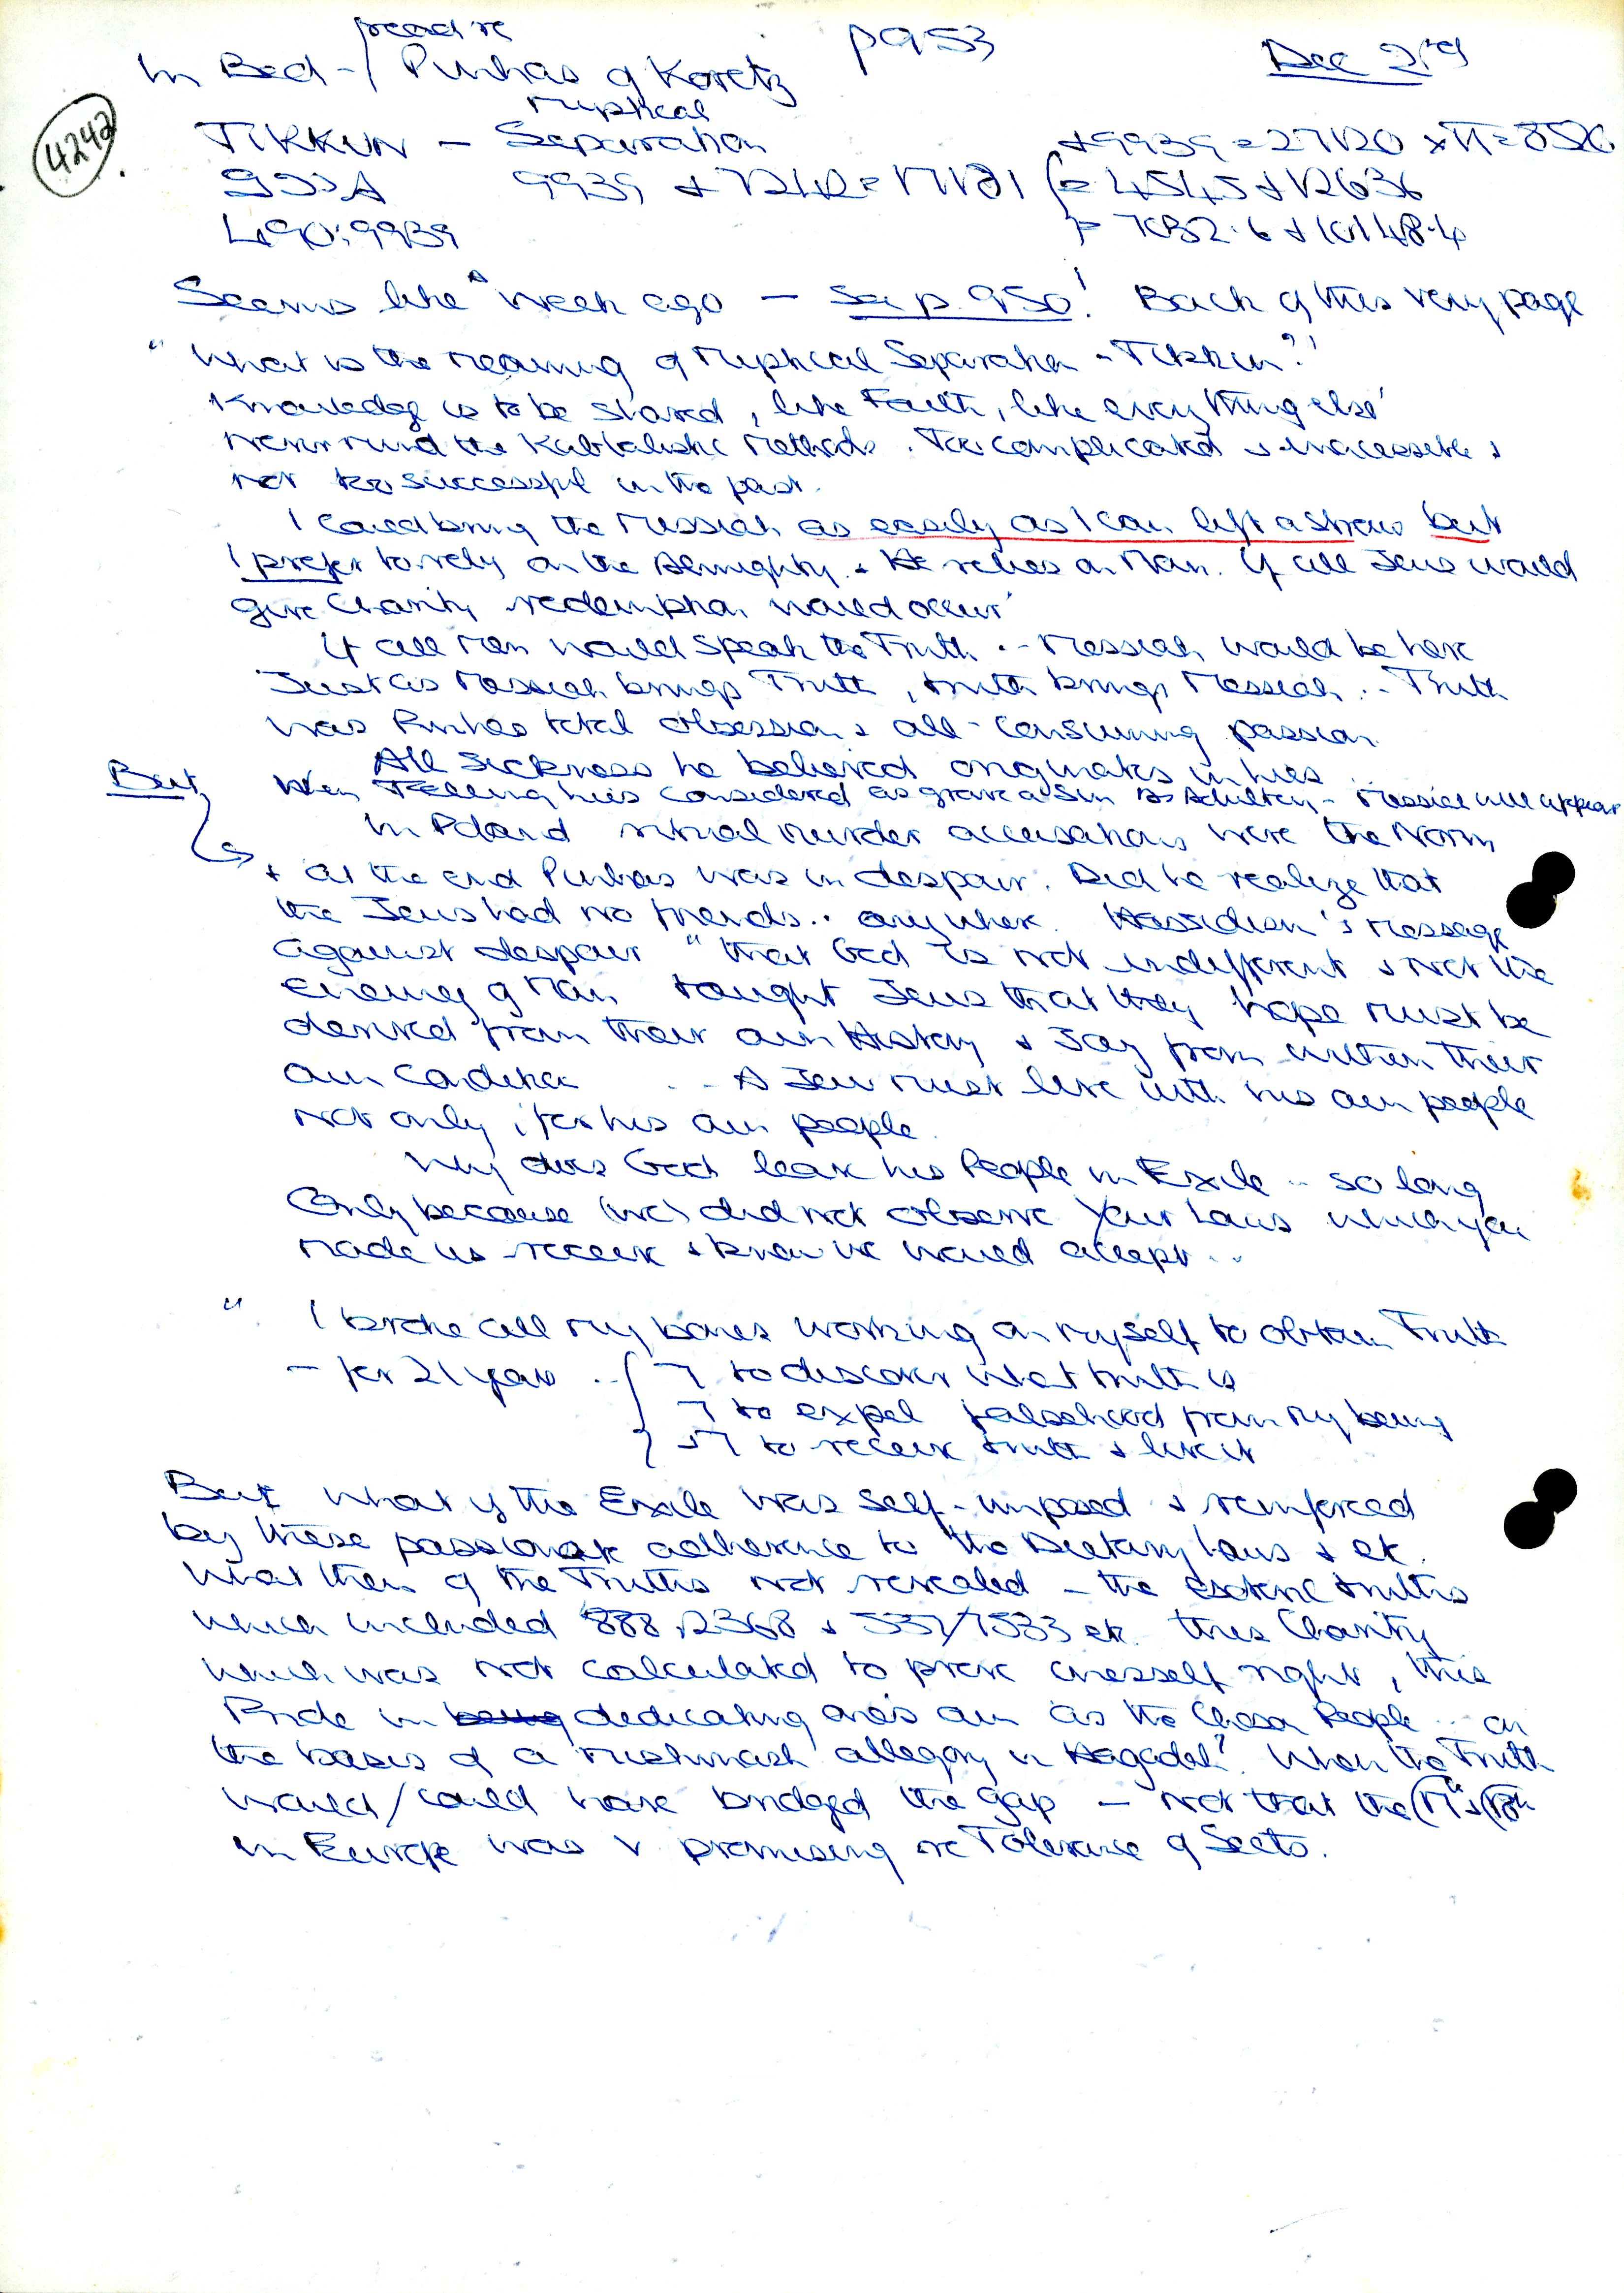 In Bed - / read re Pinhas of Koretz p 953 Dec 21st
4242
TIKKUN - Mystical Separation
9939 + 7242 = 17181
+ 9939 = 27120 x π = 8520
= 4545 + 12636
= 7032.6 + 10148.4
490:9939
Seems like a week ago - See p. 950! Back of this very page
" What is the meaning of Mystical Separation - Tikkun?'
Knowledge is to be shared, like Faith, like everything else'
never mind the Kabbalistic methods. Too complicated & inaccessible &
not too successful in the past.
I could bring the Messiah as easily as I can lift a straw but
I prefer to rely on the Almighty. & He relies on Man. If all Jews would
give Charity redemption would occur'
If all Men would speak the Truth .. Messiah would be here
Just as Messiah brings Truth, truth brings Messiah .. Truth
was Pinhas total obsession & all-consuming passion.
All sickness he believed originates in lies ..
But, When Telling lies considered as grave a Sin as Adultery - Messiah will appear
In Poland ritual murder accusations were the Norm
& at the end Pinhas was in despair. Did he realize that
the Jews had no friends .. anywhere. Hassidism's message
against despair "that God is not indifferent & not the
enemy of Man taught Jews that they hope must be
derived from their own History & Joy from within their
own condition .. A Jew must live with his own people
not only, for his own people.
Why does God leave his People in Exile .. so long
Only because (we) did not observe Your Laws which you
made us receive & knew we would accept ..
" I broke all my bones working on myself to obtain Truth
- for 21 years .. 7 to discover what truth is
7 to expel falsehood from my being
& 7 to receive truth & live it
But what if the Exile was self-imposed & reinforced
by these passionate adherence to the Dietary Laws & etc.
What then of the Truths not revealed - the esoteric truths
which included 888, 2368 & etc. this Charity
which was not calculated to prove onesself right, this
Pride in dedicating one's own as the Chosen People .. on
the basis of a mishmash allegory in Hagadah? When the Truth
would/could have bridged the gap - not that the
in Europe was v promising re Tolerance of Sects.